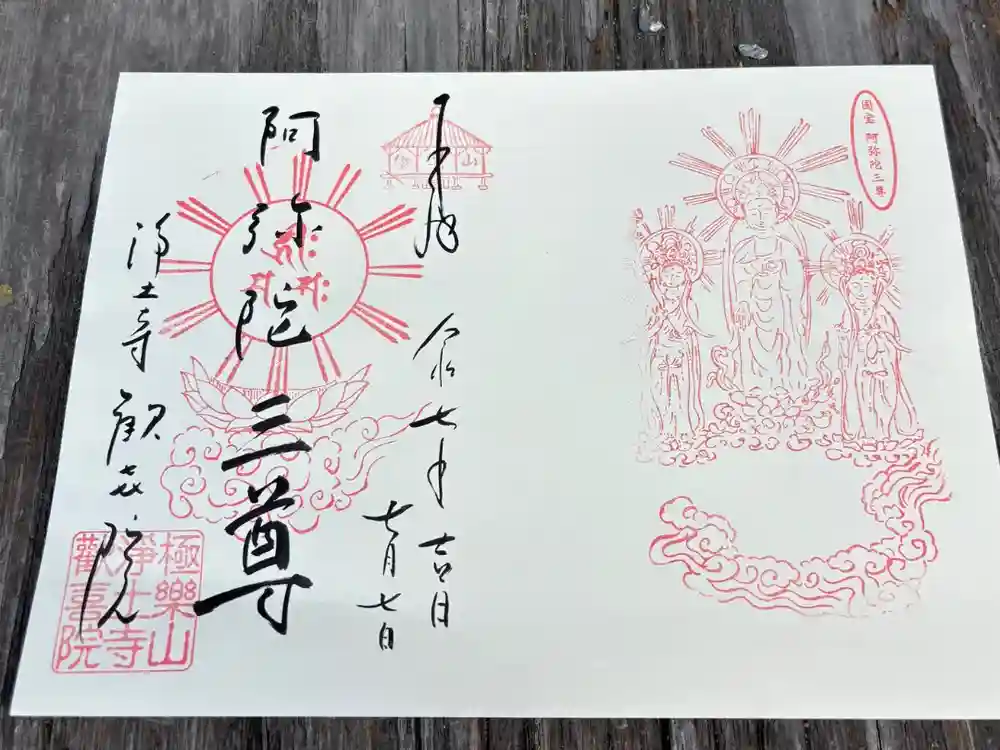 国宝 阿弥陀三尊
奉拝
令和七年 七月七日
吉日
阿弥陀三尊
浄土寺 歓喜院
極樂山
淨土寺
歡喜院